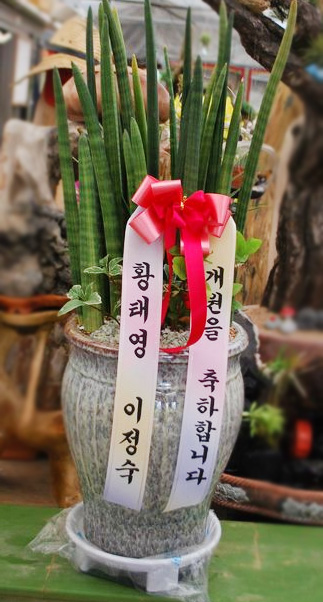 황태영 이정숙
개원을 축하합니다